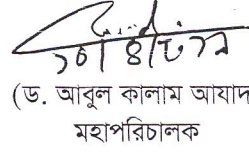 (ড. আবুল কালাম আযাদ
মহাপরিচালক